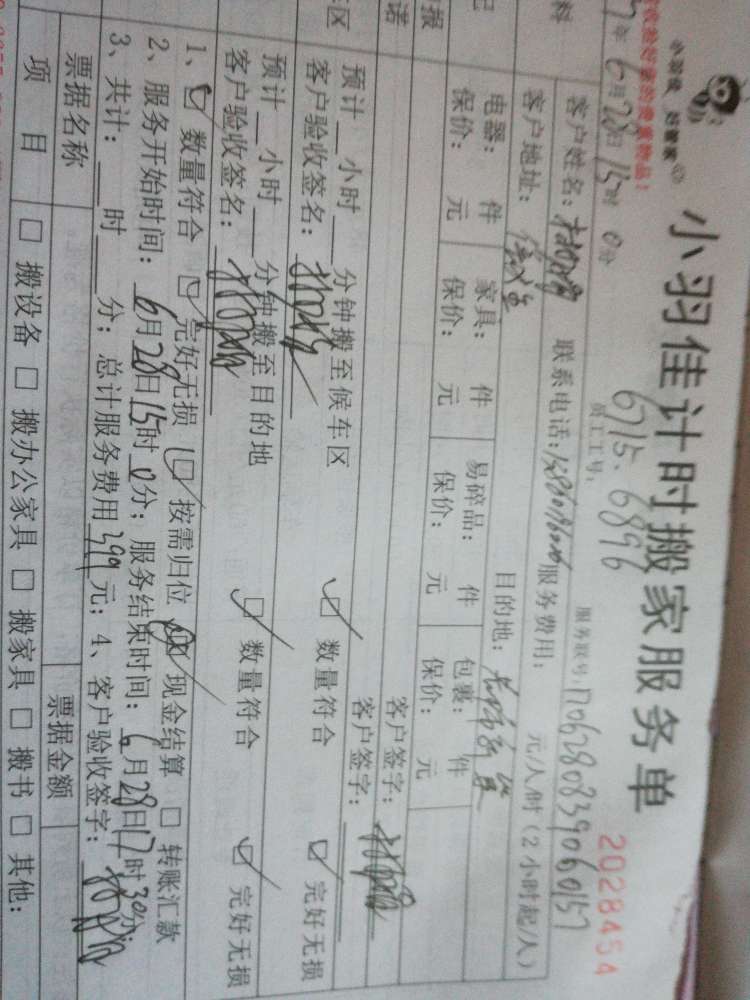 小羽佳计时搬家服务单
2028454
小羽佳 好管家
6月28日15时0分
6715.6896
员工工号:
服务联号:170628083906 0157
客户姓名: 联系电话: 服务费用: 元/人/时(2小时起/人)
客户地址: 目的地:
电器: 件 家具: 件 易碎品: 件 包裹: 件
保价: 元 保价: 元 保价: 元 保价: 元
客户签字:
客户签字:
预计__小时__分钟搬至候车区 数量符合 完好无损
客户验收签名:
预计__小时__分钟搬至目的地 数量符合 完好无损
客户验收签名:
1、 数量符合 完好无损 按需归位 现金结算 转账汇款
2、服务开始时间:6月28日15时0分;服务结束时间:6月28日17时30分
3、共计:__时__分;总计服务费用399元;4、客户验收签字:
票据名称 票据金额
项 目 搬设备 搬办公家具 搬家具 搬书 其他: